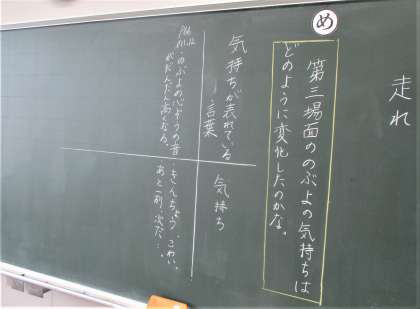 走れ
め
第三場面ののぶよの気持ちは
どのように変化したのかな。
気持ちが表れている
言葉
気持ち
P66
のぶよの心ぞうの音
がだんだん高くなる。
・きんちょう・こわい
・あと一前、次だ…。